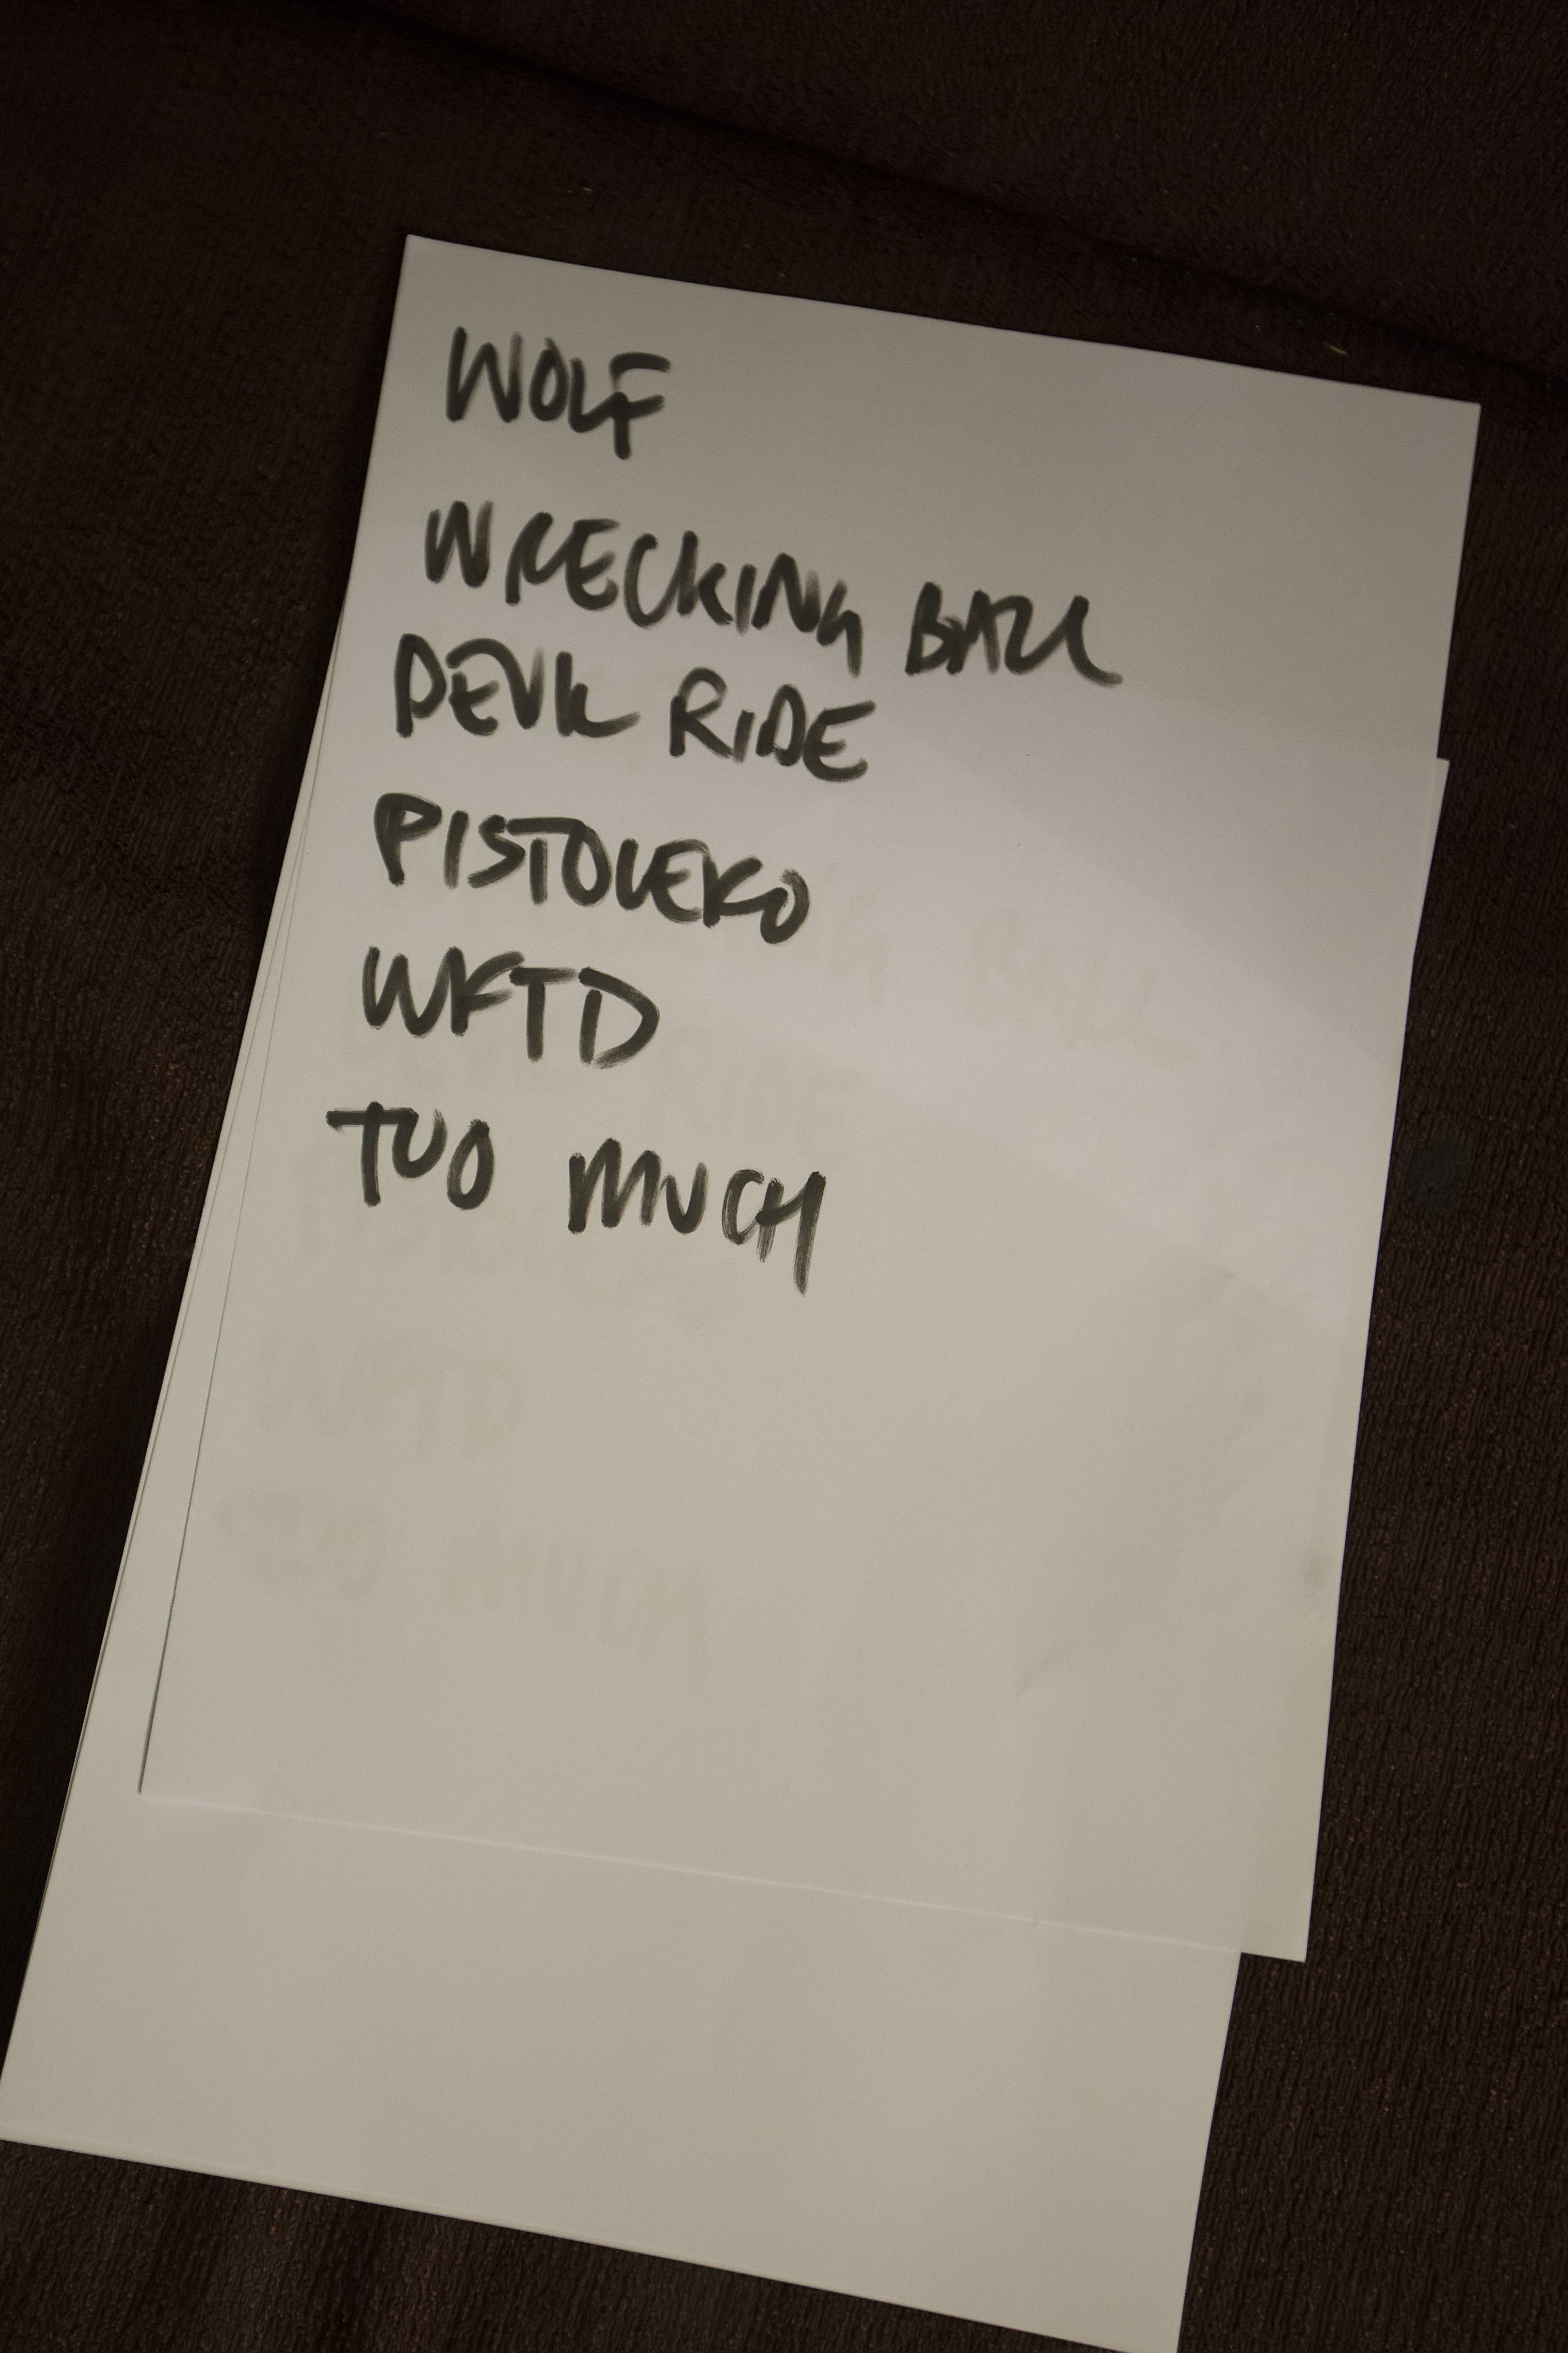 WOLF
WRECKING BALL
DEVIL RIDE
PISTOLERO
WFTD
TOO MUCH